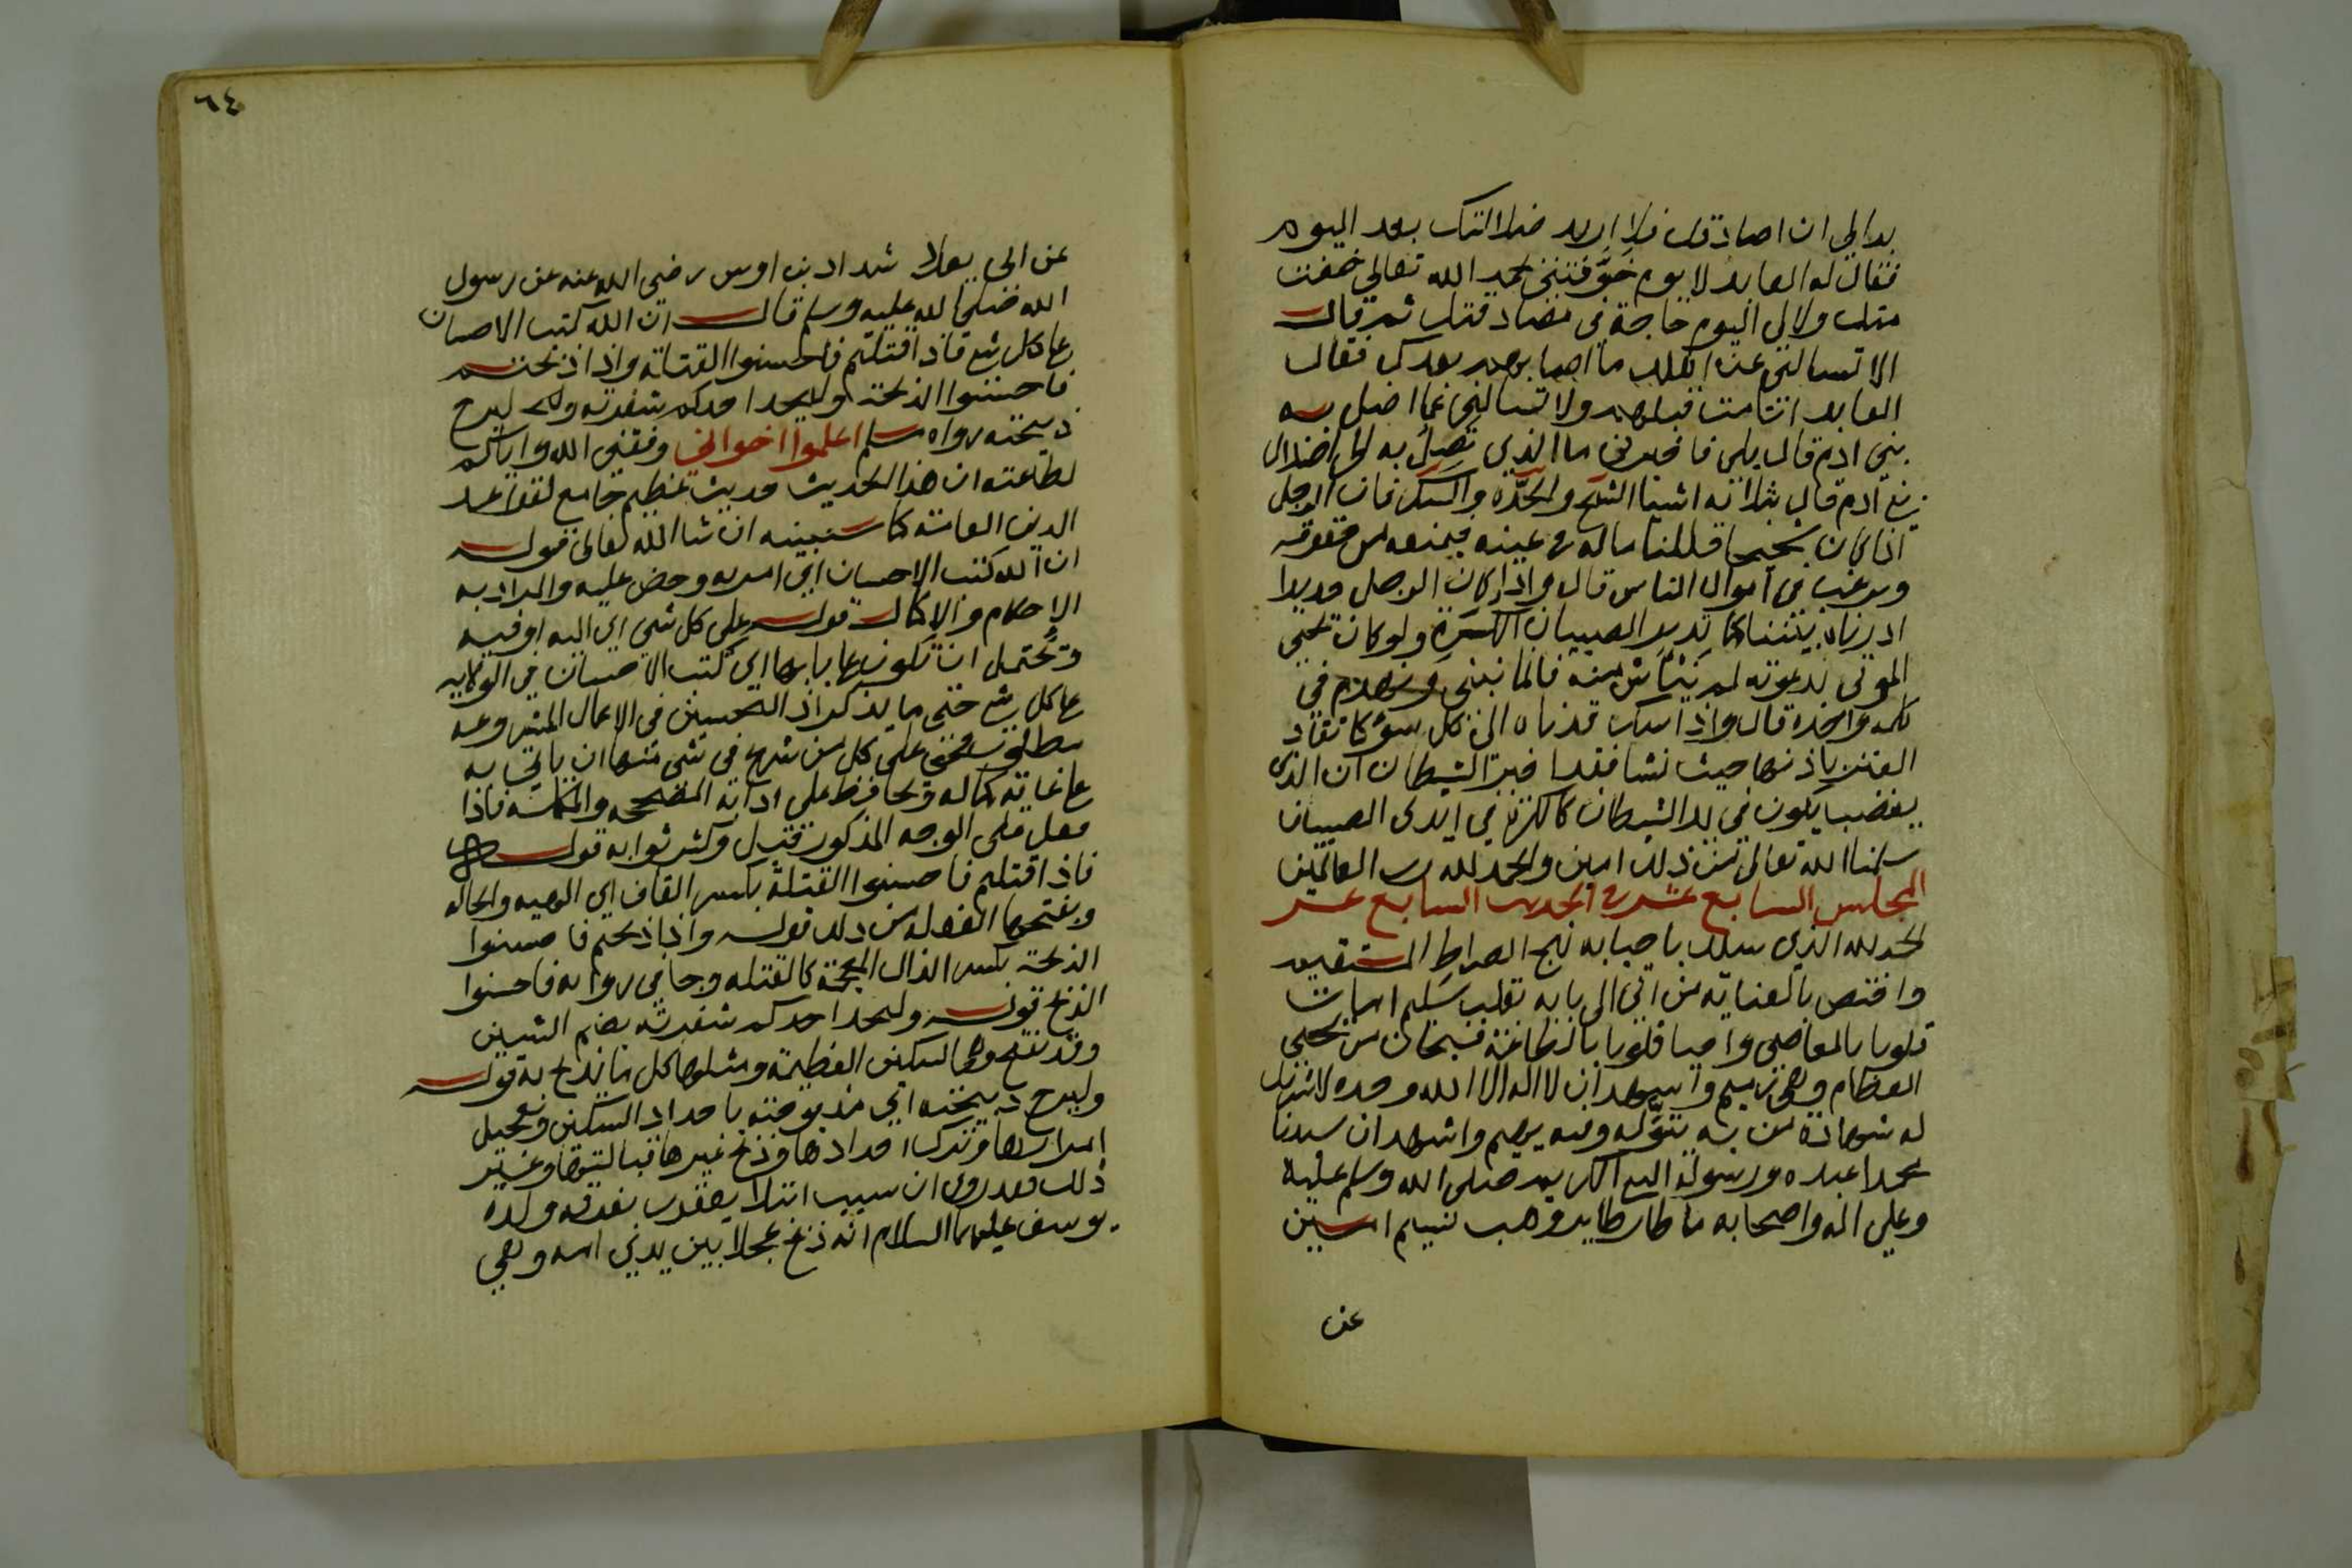 بدالي ان اصادقك فلا اريد ضلالتك بعد اليوم
فقال له العابد لا يوم خوفتني بحمد الله تعالى خفت
منك ولا لي اليوم حاجة في مصادقتك ثم قال
الا تسالني عن اهلك ما اصابهم بعدك فقال
العابد انا مت قبلهم ولا تسالني عما اضل به
بني ادم قال بلى فاخبرني ما الذي تصل به الى اضلال
بني آدم قال بثلاثه اشيا الشح والحدة والسكر فان الرجل
اذا كان شحيحا قللنا ماله في عينه فيمنعه من حقوقه
ويرغب في اموال الناس قال واذا كان الرجل حديدا
ادرناه بيننا كما تدير الصبيان الكرة ولو كان يحيى
الموتى بدعوته لم نيأس منه فانما نبني ونهدم في
كلمه واحده قال واذا سكر قدناه الى كل سوء كما تقاد
العنز باذنها حيث نشا فقد اخبر الشيطان ان الذي
يغضب يكون في يد الشيطان كالكرة في ايدى الصبيان
سلمنا الله تعالى من ذلك امين والحمد لله رب العالمين
المجلس السابع عشر في الحديث السابع عشر
الحمد لله الذي سلك باحبابه نهج الصراط المستقيم
واختص بالعناية من اتى الى بابه بقلب سليم امات
قلوبا بالمعاصي واحيا قلوبا بالطاعة فسبحان من يحيي
العظام وهي رميم واشهد ان لا اله الا الله وحده لا شريك
له شهادة من به يتوله وفيه يهيم واشهد ان سيدنا
محمدا عبده ورسوله النبي الكريم صلى الله وسلم عليه
وعلى اله واصحابه ما طار طاير وهب نسيم امين
عن
٦٤
عن ابى يعلا شداد بن اوس رضي الله عنه عن رسول
الله صلى الله عليه وسلم قال ان الله كتب الاحسان
على كل شي فاذا قتلتم فاحسنوا القتلة واذا ذبحتم
فاحسنوا الذبحة وليحد احدكم شفرته وليرح
ذبيحته رواه مسلم اعلموا اخواني وفقني الله واياكم
لطاعته ان هذا الحديث حديث عظيم جامع لقواعد
الدين العامة كما سنبينه ان شا الله تعالى قوله
ان الله كتب الاحسان اي امر به وحض عليه والمراد به
الاحكام والاكمال قوله على كل شي اي اليه او فيه
ويحتمل ان تكون على بابها اي كتب الاحسان في الولاية
على كل شي حتى ما يذكر اذ التحسين في الاعمال المشروعة
مطلوب فحق على كل من شرع في شي منها ان ياتي به
على غاية كماله ويحافظ على ادابه المصححه والمكملة فاذا
فعل على الوجه المذكور قبل وكثر ثوابه قوله
فاذا قتلتم فاحسنوا القتلة بكسر القاف اي الهيه والحالة
وبفتحها الفعله من ذلك قوله واذا ذبحتم فاحسنوا
الذبحة بكسر الذال المعجمة كالقتله وجا في رواية فاحسنوا
الذبح قوله وليحد احدكم شفرته بضم الشين
وقد تفتح وهي السكين العظيمة ومثلها كل ما يذبح به قوله
وليرح ذبيحته اي مذبوحته باحداد السكين وتعجيل
امرارها وترك احدادها وذبح غيرها قبالتها وغير
ذلك فقد روي ان سبب ابتلا يعقوب بفرقه ولده
يوسف عليهما السلام انه ذبح عجلا بين يدي امه وهي